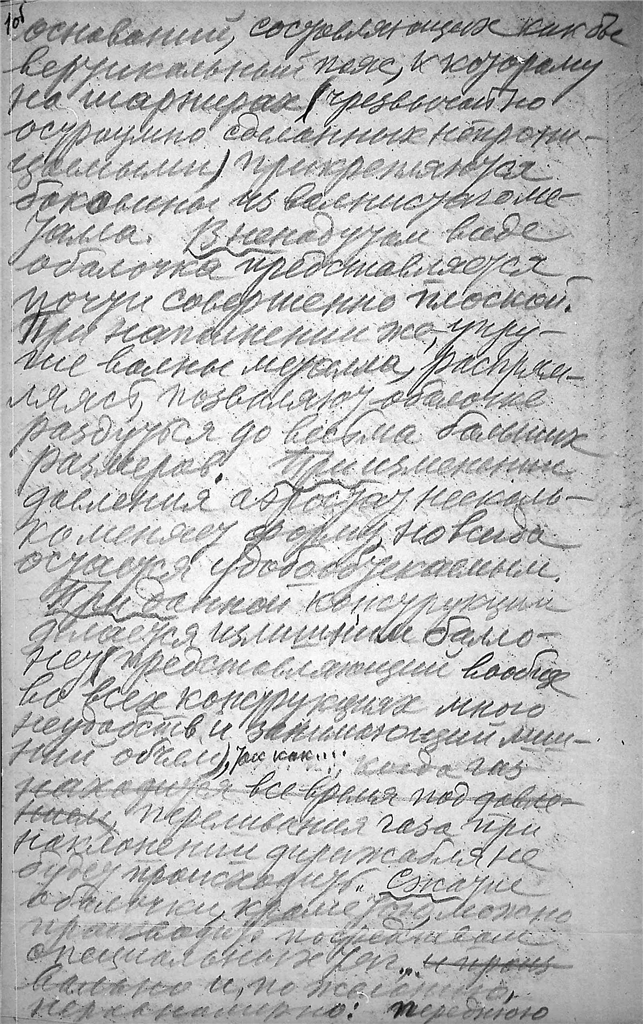 106
оснований, составляющих как бы
вертикальный пояс, к которому
на шарнирах (чрезвычайно
остроумно сделанных непрони-
цаемыми) прикрепляются
боковины из волнистого ме-
талла. В ненадутом виде
оболочка представляется
почти совершенно плоской.
При наполнении же, упру-
гие волны металла, распрям-
ляяст, позволяют оболочке
раздуться до весьма больших
размеров. При изменении
давления аэростат несколь-
ко меняет форму, но всегда
остается удобообтекаемым.
При данной конструкции
делается излишним балло-
нет (представляющий вообще
во всех конструкциях много
неудобств и занимающий лиш-
ний объем), так как... когда газ
находится все время под давле-
нием, переливания газа при
наклонении дирижабля не
будет происходить. Сжатие
оболочки, кроме того, можно
производить посредством
специальных тяг... и произ
вольно и, по желанию,
неравномерно: переднюю